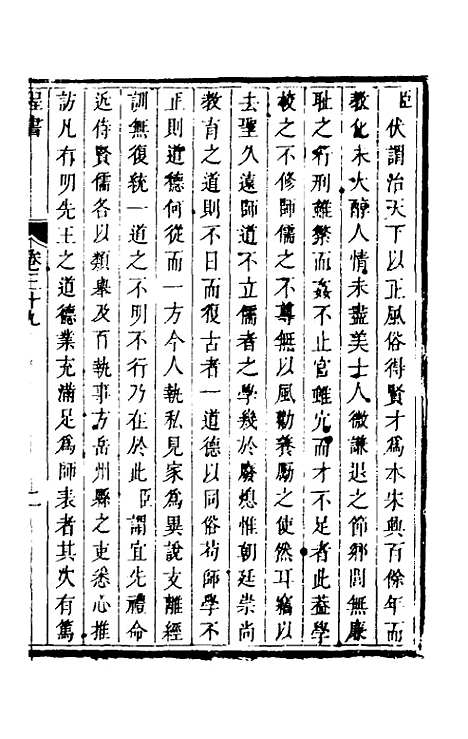 臣伏謂治天下以正風俗得賢才爲本宋興百餘年而
教化未大醇人情未盡美士人微謙退之節鄉閭無廉
耻之行刑雖繁而姦不止官雖冗而才不足者此蓋學
校之不修師儒之不尊無以風勸養勵之使然耳竊以
去聖久遠師道不立儒者之學幾於廢熄惟朝廷崇尚
教育之道則不日而復古者一道德以同俗苟師學不
正則道德何從而一方今人執私見家爲異說支離經
訓無復統一道之不明不行乃在於此臣謂宜先禮命
近侍賢儒各以類舉及百執事方岳州縣之吏悉心推
訪凡有明先王之道德業充滿足爲師表者其次有篤
程書
卷三十九